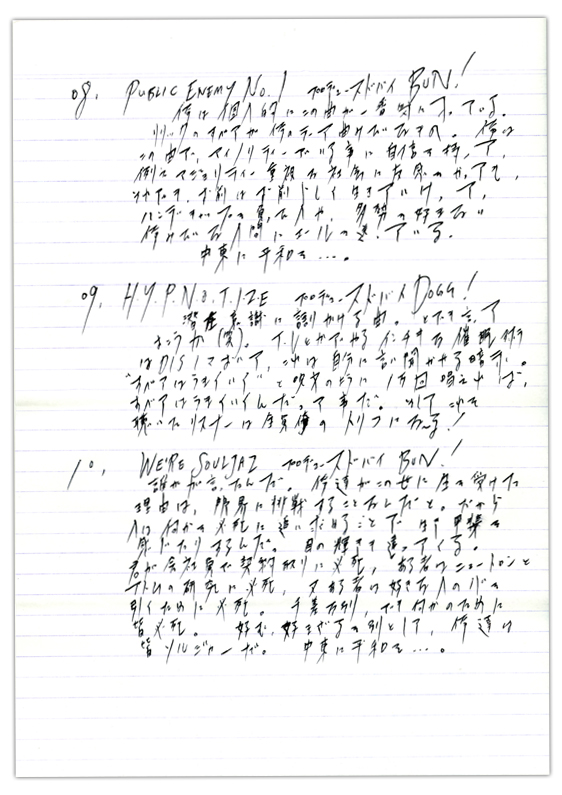 08. PUBLIC ENEMY No.1 プロデュースドバイ BUN!
俺は個人的にこの曲が一番気に入っている。
リリックのすべてが俺にとって曲げれないもの。俺は
この曲で、マイノリティーでいる事に自信を持って、
例えマジョリティー重視の社会に
お前はお前らしく生きていけ、って、
ハンデを 人や、多勢の好まない
人間にエールを送っている。
中東に平和を…。
09. H.Y.P.N.O.T.I.ZE プロデュースドバイ DOGG!
潜在意識に語りかける曲。とでも言って
おこうか(笑)。T.Vとかでやるインチキな催眠術
はDISしておいて、これは自分に言い聞かせる暗示。
"すべてはうまくいく"と呪文のように1万回唱えれば、
すべてはうまくいくんだって事だ。そしてこれを
聴いたリスナーは全員俺のトリコになーる!
10. WE'RE SOULJAZ プロデュースドバイ BUN!
誰かが言ったんだ。俺達がこの世に生を受けた
理由は、限界に挑戦することなんだと。だから
人は何かを必死に追い求めることで
感じたりするんだ。目の輝きも違ってくる。
君が会社員で契約取りに必死、ある者はニュートンと
アトムの研究に必死、又ある者は好きな人の心を
引くために必死。千差万別、でも何かのために
皆必死。好む、好まざるを別として、俺達は
皆ソルジャーだ。中東に平和を…。